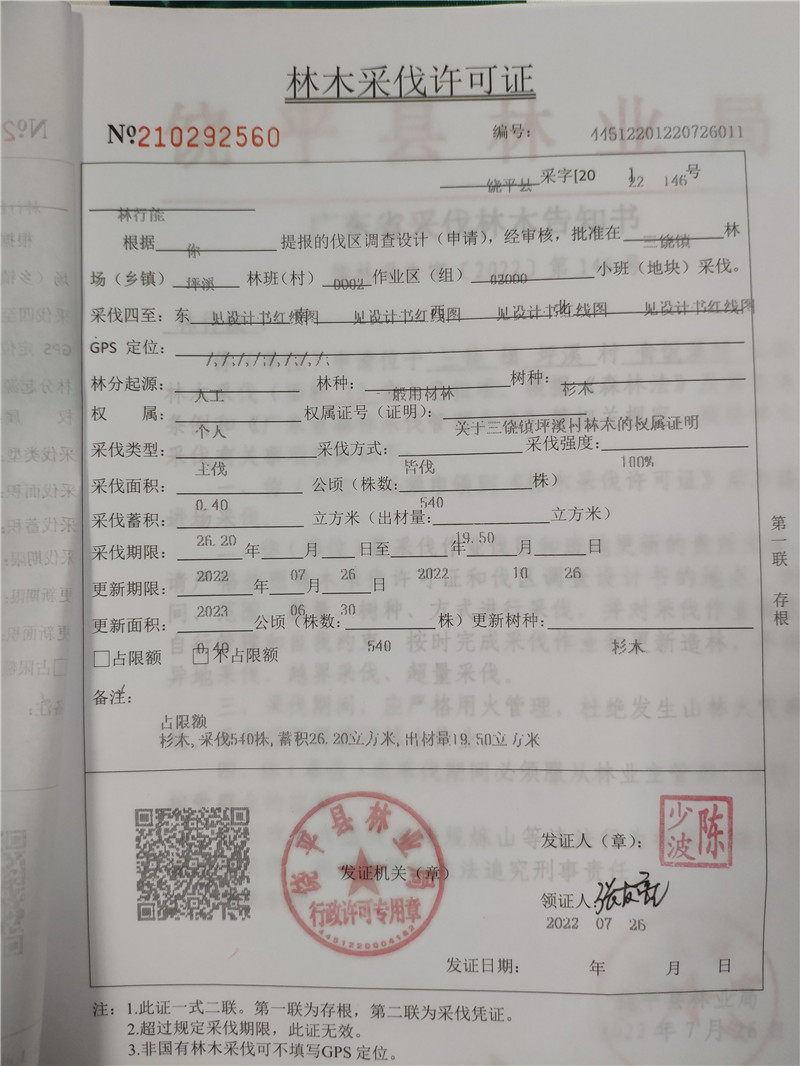 林木采伐许可证
№210292560 编号: 44512201220726011
饶平县 采字[2022]146号
林行能
根据 你 提报的伐区调查设计（申请），经审核，批准在 三饶镇 林
场（乡镇） 坪溪 林班(村) 0002 作业区（组） 02000 小班（地块）采伐。
采伐四至: 东 见设计书红线图 南 见设计书红线图 西 见设计书红线图 北 见设计书红线图
GPS 定位: /,/,/,/,/,/,/,/,
林分起源: 人工 林种: 一般用材林 树种: 杉木
权 属: 个人 权属证号（证明）: 关于三饶镇坪溪村林木的权属证明
采伐类型: 主伐 采伐方式: 皆伐 采伐强度: 100%
采伐面积: 0.40 公顷（株数: 540 株）
采伐蓄积: 26.20 立方米（出材量: 19.50 立方米）
采伐期限: 2022 年 07 月 26 日至 2022 年 10 月 26 日
更新期限: 2023 年 06 月 30 日
更新面积: 0.40 公顷（株数: 540 株）更新树种: 杉木
□占限额 □不占限额
备注:
占限额
杉木,采伐540株,蓄积26.20立方米,出材量19.50立方米
第一联 存根
饶平县林业局
行政许可专用章
4451220004182
发证机关（章）
发证人（章）:
陈少波
领证人:
2022 07 26
发证日期: 年 月 日
注: 1.此证一式二联。第一联为存根，第二联为采伐凭证。
2.超过规定采伐期限，此证无效。
3.非国有林木采伐可不填写GPS 定位。